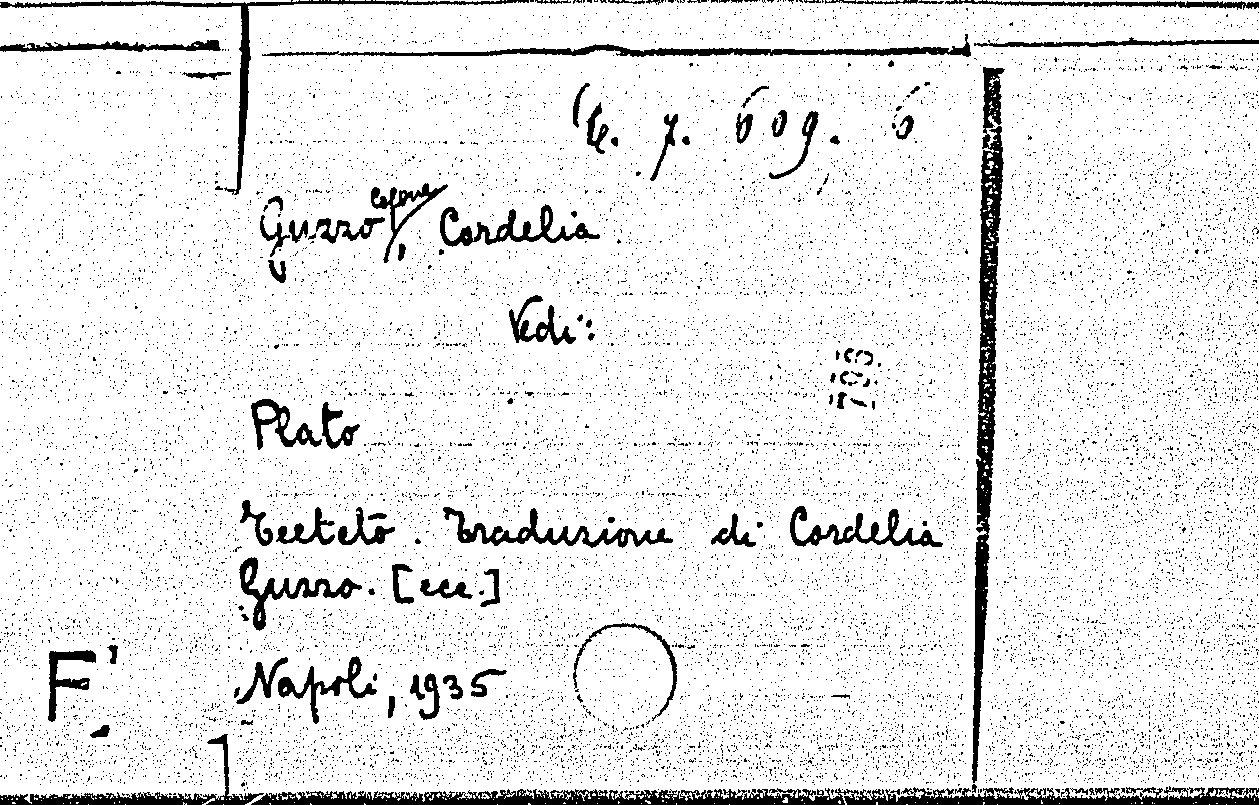 7. 609. 6
Guzzo Capone, Cordelia
Vedi:
Plato
Teeteto. Traduzione di Cordelia
Guzzo. [ecc.]
Napoli, 1935
F